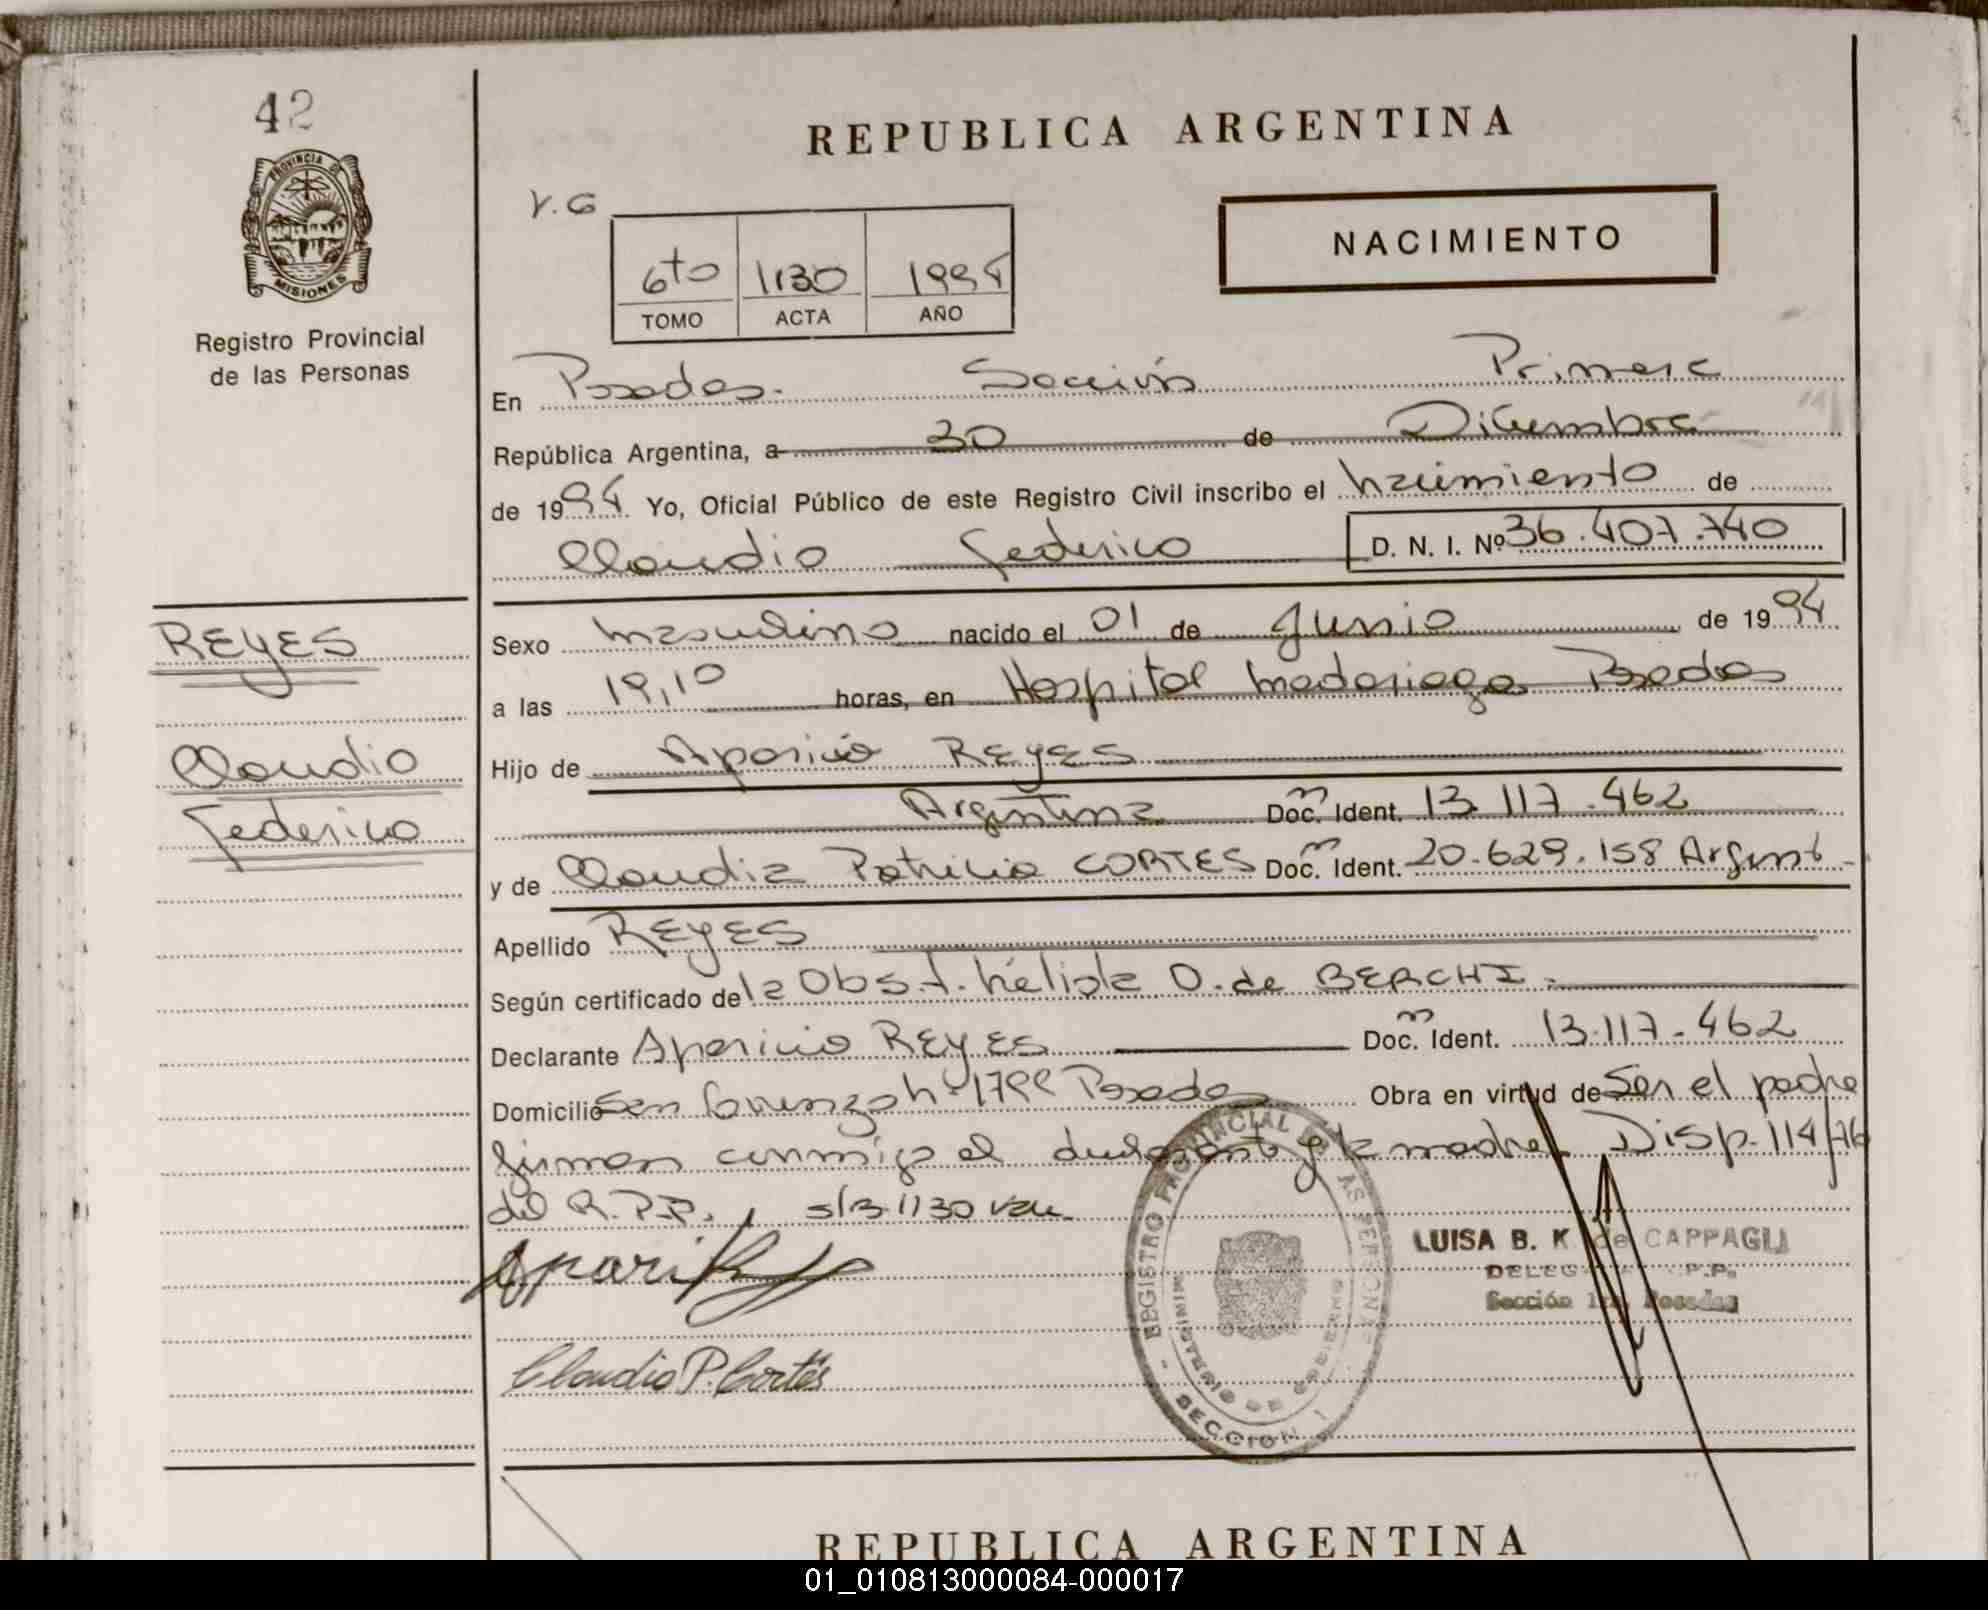 42
PROVINCIA DE
MISIONES
Registro Provincial
de las Personas
REPUBLICA ARGENTINA
V.G
NACIMIENTO
6to 1130 1994
TOMO ACTA AÑO
En Posadas. Sección Primera
República Argentina, a 30 de Diciembre
de 1994 Yo, Oficial Público de este Registro Civil inscribo el nacimiento de
Claudio Federico D. N. I. Nº 36.407.740
REYES
Claudio
Federico
Sexo Masculino nacido el 01 de Junio de 1994
a las 19,10 horas, en Hospital Madariaga Posadas
Hijo de Aparicio REYES
Argentina Doc. Ident. 13.117.462
y de Claudia Patricia CORTES Doc. Ident. 20.629.158 Argent.
Apellido REYES
Según certificado de la Obst. Nélida O. de BERCHI.
Declarante Aparicio REYES Doc. Ident. 13.117.462
Domicilio San Lorenzo Nº Posadas Obra en virtud de Ser el padre
firman conmigo el declarante y la madre Disp. 114/76
del R.P.P. s/r 1130 vale
Apari
Claudia P. Cortés
REGISTRO PROVINCIAL DE LAS PERSONAS
MINISTERIO DE GOBIERNO
SECCION 1
LUISA B. K. de CAPPAGLI
DELEG R.P.P.
Sección 1ra. Posadas
REPUBLICA ARGENTINA
01_010813000084-000017